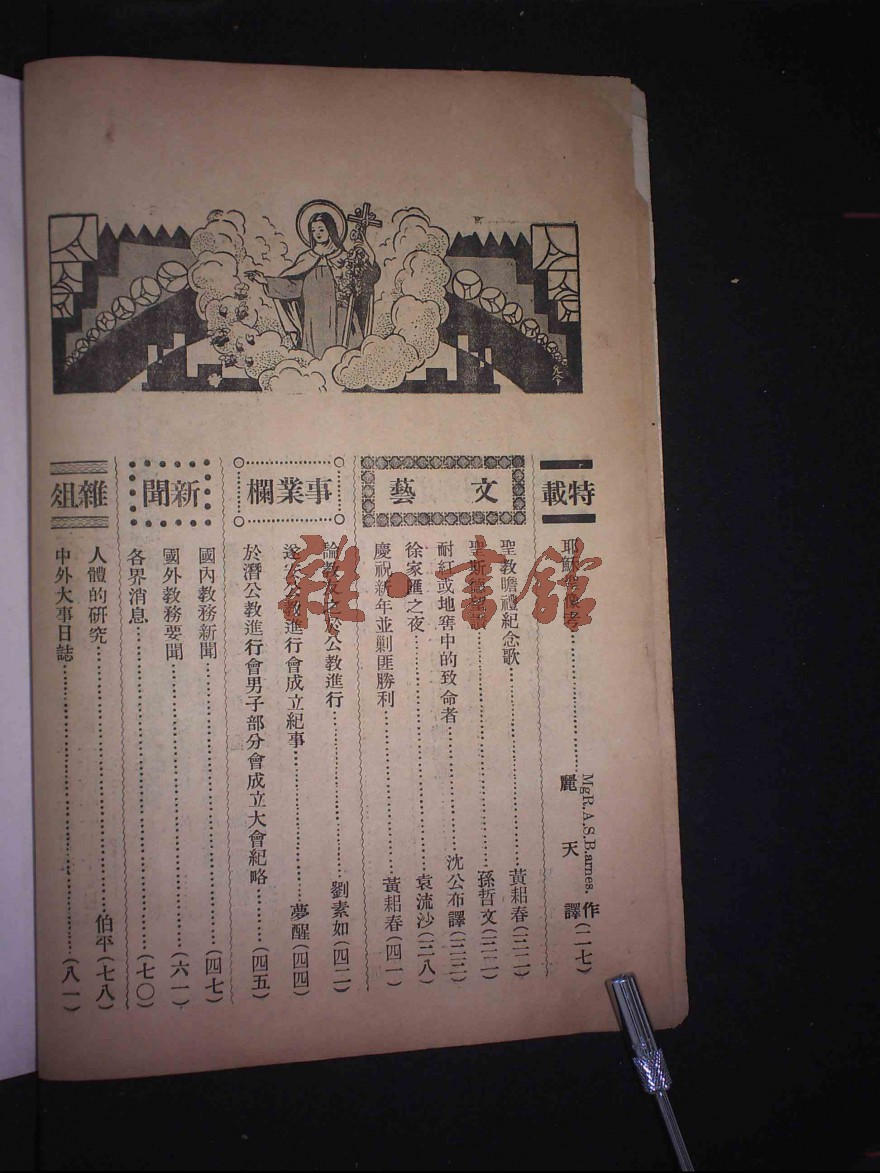 特載
耶穌聖像考 MgR.A.S.B.arnes. 作 麗天 譯(二七)
文藝
聖教瞻禮紀念歌 黃耜春(三一)
聖斯德望 孫哲文(三二)
耐紅或地窖中的致命者 沈公布譯(三三)
徐家匯之夜 袁流沙(三八)
慶祝新年並剿匪勝利 黃耜春(四一)
事業欄
論教友之於公教進行 劉素如(四二)
遂安公教進行會成立紀事 夢醒(四四)
於潛公教進行會男子部分會成立大會紀略(四五)
新聞
國內教務新聞(四七)
國外教務要聞(六一)
各界消息(七〇)
雜俎
人體的研究 伯平(七八)
中外大事日誌(八一)
雜·書館